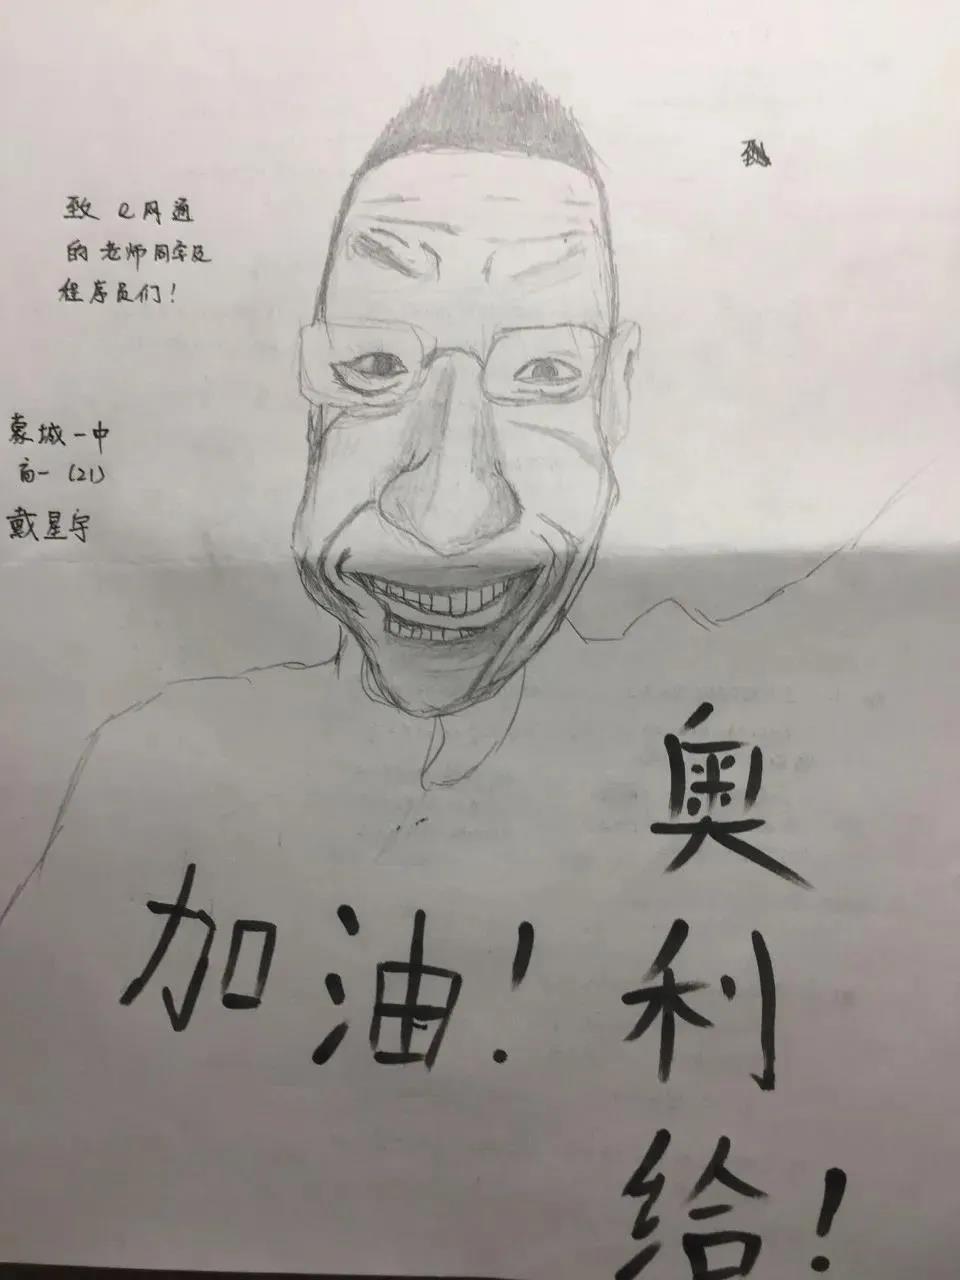 致e网通
的老师同学及
程序员们！
蒙城一中
高一（21）
戴星宇
加油！
奥
利
给！